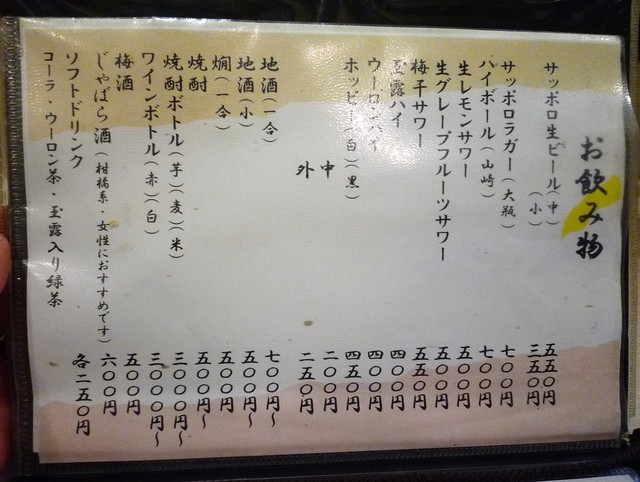 お飲み物
サッポロ生ビール(中) 五五〇円
(小) 三五〇円
サッポロラガー(大瓶) 七〇〇円
ハイボール(山崎) 七〇〇円
生レモンサワー 五〇〇円
生グレープフルーツサワー 五五〇円
梅干サワー 五五〇円
玉露ハイ 四〇〇円
ウーロンハイ 四〇〇円
ホッピー(白)(黒) 四五〇円
中 二〇〇円
外 二五〇円
地酒(一合) 七〇〇円〜
地酒(小) 五〇〇円〜
燗(一合) 五〇〇円
焼酎 五〇〇円〜
焼酎ボトル(芋)(麦)(米) 三〇〇〇円〜
ワインボトル(赤)(白) 三〇〇〇円〜
梅酒 五〇〇円
じゃばら酒(柑橘系・女性におすすめです) 六〇〇円
ソフトドリンク 各二五〇円
コーラ・ウーロン茶・玉露入り緑茶